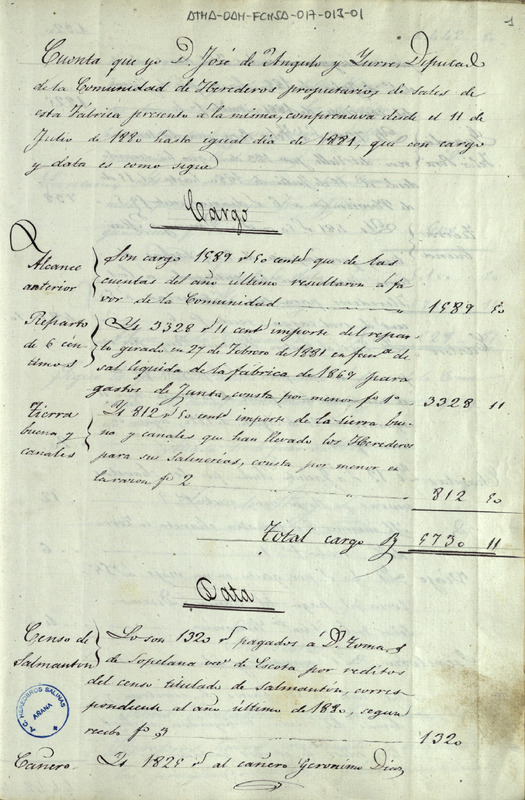 ATHA-DAH-FCHSA-017-013-01
1
Cuenta que yo D. José de Angulo y Yurre, Diputado
de la Comunidad de Herederos propietarios de sales de
esta Fábrica presento á la misma, comprensiva desde el 11 de
Julio de 1880 hasta igual dia de 1881, que con cargo
y data es como sigue
Cargo
Alcance anterior
Son cargo 1589 r 50 cent que de las
cuentas del año último resultaron á fa
vor de la Comunidad 1589 50
Reparto de 6 cén timos
Yt 3328 r 11 cent importe del repar
to girado en 27 de Febrero de 1881 en fan.s de
sal liquida de la fábrica de 1869 para
gastos de Junta, consta por menor fº 1º 3328 11
Tierra buena y canales
Yt 812 r 50 cent importe de la tierra bue
na y canales que han llevado los Herederos
para sus salinerias, consta por menor en
la razon fº 2 812 50
Total cargo 5730 11
Data
Censo de Salmantón
Lo son 1320 r pagados á D. Tomas
de Sopelana vec.º de Escota por reditos
del censo titulado de Salmantón, corres
pondiente al año último de 1880, segun
recibo fº 3 1320
Cañero
Yt 1825 r al cañero Geronimo Diaz
A.C. HEREDEROS SALINAS
AÑANA